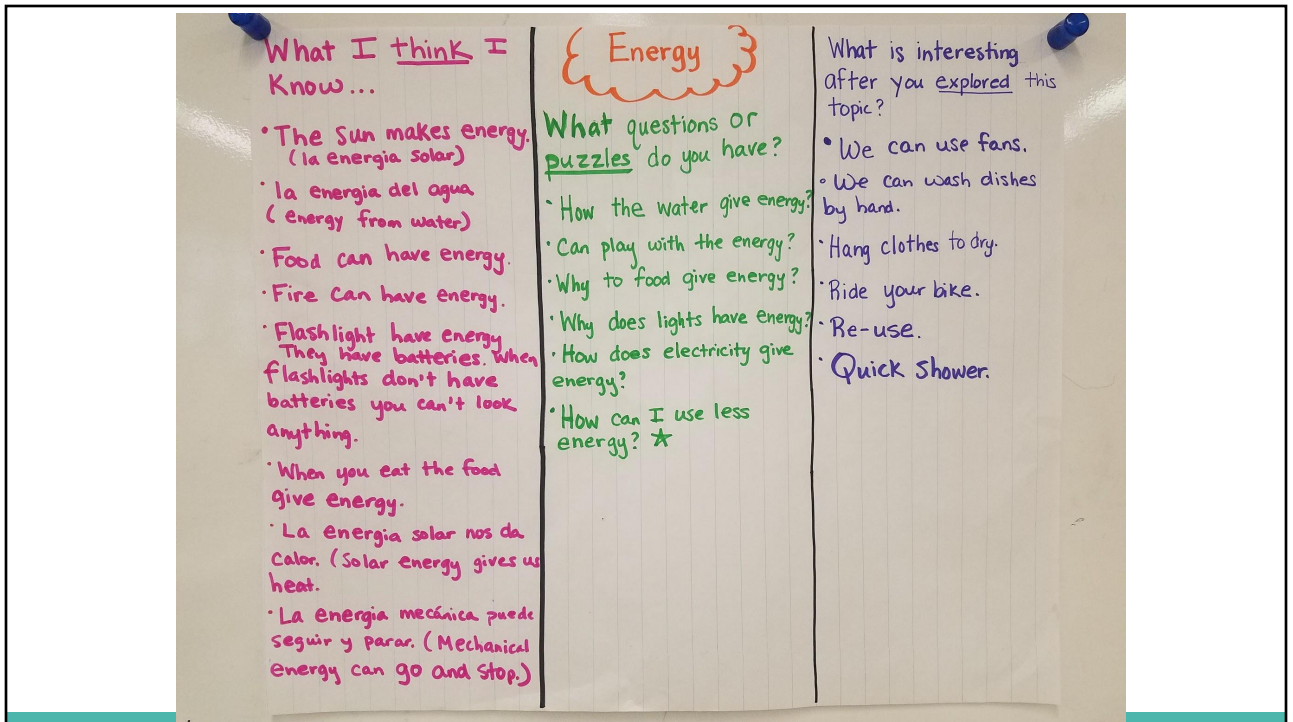 What I think I
Know...
• The Sun makes energy.
(la energia solar)
• la energia del agua
( energy from water)
• Food can have energy.
• Fire can have energy.
• Flashlight have energy
They have batteries. When
flashlights don't have
batteries you can't look
anything.
• When you eat the food
give energy.
• La energia solar nos da
calor. (Solar energy gives us
heat.
• La energia mecánica puede
seguir y parar. (Mechanical
energy can go and stop.)
Energy
What questions or
puzzles do you have?
• How the water give energy?
• Can play with the energy?
• Why to food give energy?
• Why does lights have energy?
• How does electricity give
energy?
• How can I use less
energy? ☆
What is interesting
after you explored this
topic?
• We can use fans.
• We can wash dishes
by hand.
• Hang clothes to dry.
• Ride your bike.
• Re-use.
• Quick Shower.